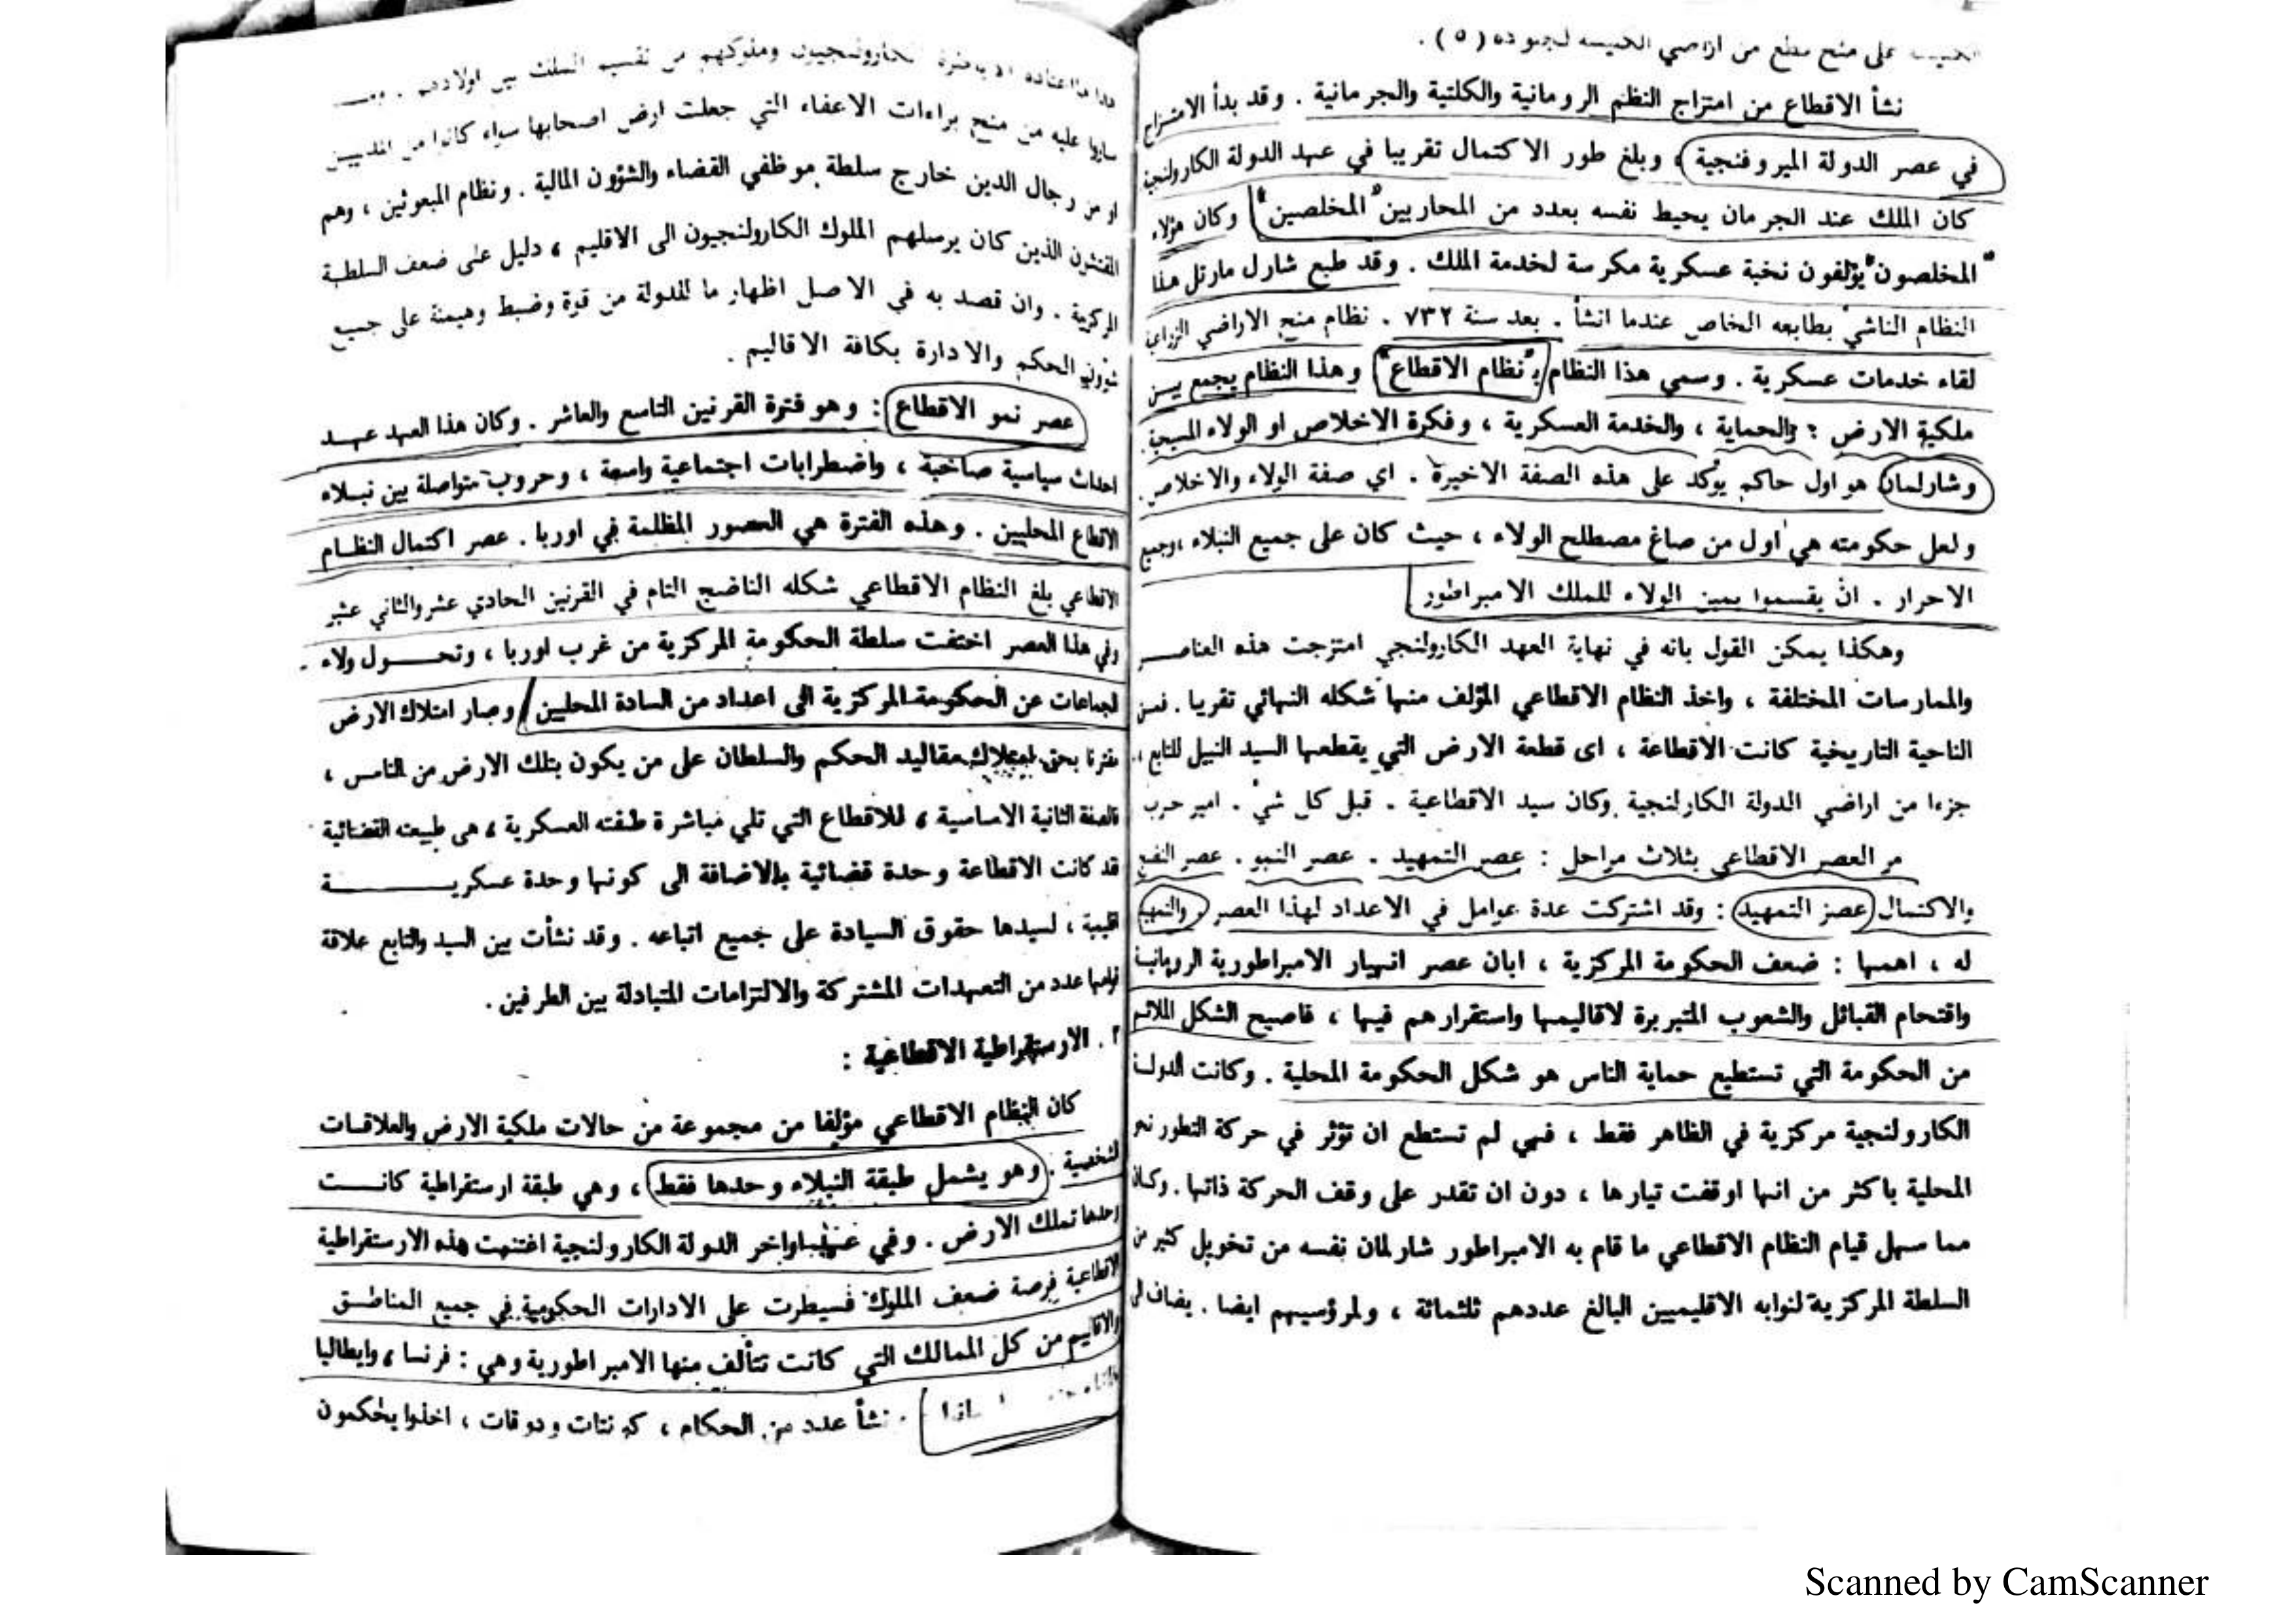 على منح قطع من اراضي الكنيسه لجنوده (٥) .
نشأ الاقطاع من امتزاج النظم الرومانية والكلتية والجرمانية . وقد بدأ الامتزاج
في عصر الدولة الميروفنجية ، وبلغ طور الاكتمال تقريبا في عهد الدولة الكارولنجية
كان الملك عند الجرمان يحيط نفسه بعدد من المحاربين "المخلصين" وكان هؤلاء
"المخلصون" يؤلفون نخبة عسكرية مكرسة لخدمة الملك . وقد طبع شارل مارتل هذا
النظام الناشئ بطابعه الخاص عندما انشأ . بعد سنة ٧٣٢ . نظام منح الاراضي الزراعية
لقاء خدمات عسكرية . وسمي هذا النظام بـ "نظام الاقطاع" وهذا النظام يجمع بين
ملكية الارض ؛ والحماية ، والخدمة العسكرية ، وفكرة الاخلاص او الولاء المسيحية
وشارلمان هو اول حاكم يؤكد على هذه الصفة الاخيرة . اي صفة الولاء والاخلاص.
ولعل حكومته هي اول من صاغ مصطلح الولاء ، حيث كان على جميع النبلاء ، وجميع
الاحرار . ان يقسموا يمين الولاء للملك الامبراطور
وهكذا يمكن القول بانه في نهاية العهد الكارولنجي امتزجت هذه العناصر
والممارسات المختلفة ، واخذ النظام الاقطاعي المؤلف منها شكله النهائي تقريبا . فمن
الناحية التاريخية كانت الاقطاعة ، اى قطعة الارض التي يقطعها السيد النبيل للتابع ،
جزءا من اراضي الدولة الكارلنجية . وكان سيد الاقطاعية . قبل كل شئ . امير حرب
مر العصر الاقطاعي بثلاث مراحل : عصر التمهيد . عصر النمو . عصر النضج
والاكتمال عصر التمهيد : وقد اشتركت عدة عوامل في الاعداد لهذا العصر . والتمهيد
له ، اهمها : ضعف الحكومة المركزية ، ابان عصر انهيار الامبراطورية الرومانية
واقتحام القبائل والشعوب المتبربرة لاقاليمها واستقرارهم فيها ، فاصبح الشكل الملائم
من الحكومة التي تستطيع حماية الناس هو شكل الحكومة المحلية . وكانت الدولة
الكارولنجية مركزية في الظاهر فقط ، فهي لم تستطع ان تؤثر في حركة التطور نحو
المحلية باكثر من انها اوقفت تيارها ، دون ان تقدر على وقف الحركة ذاتها . وكان
مما سهل قيام النظام الاقطاعي ما قام به الامبراطور شارلمان نفسه من تخويل كثير من
السلطة المركزية لنوابه الاقليميين البالغ عددهم ثلثمائة ، ولمرؤسيهم ايضا . يضاف الى
الكارولنجيون وملوكهم من تقسيم الملك بين اولادهم .
ساروا عليه من منح براءات الاعفاء التي جعلت ارض اصحابها سواء كانوا من
او من رجال الدين خارج سلطة موظفي القضاء والشؤون المالية . ونظام المبعوثين ، وهم
المفتشون الذين كان يرسلهم الملوك الكارولنجيون الى الاقليم ، دليل على ضعف السلطة
المركزية . وان قصد به في الاصل اظهار ما للدولة من قوة وضبط وهيمنة على جميع
شؤون الحكم والادارة بكافة الاقاليم .
عصر نمو الاقطاع : وهو فترة القرنين التاسع والعاشر . وكان هذا العهد عهد
احداث سياسية صاخبة ، واضطرابات اجتماعية واسعة ، وحروب متواصلة بين نبلاء
الاقطاع المحليين . وهذه الفترة هي العصور المظلمة في اوربا . عصر اكتمال النظام
الاقطاعي بلغ النظام الاقطاعي شكله الناضج التام في القرنين الحادي عشر والثاني عشر
وفي هذا العصر اختفت سلطة الحكومة المركزية من غرب اوربا ، وتحول ولاء
الجماعات عن الحكومة المركزية الى اعداد من السادة المحليين وصار امتلاك الارض
مقترنا بحق مقاليد الحكم والسلطان على من يكون بتلك الارض من الناس ،
فالصفة الثانية الاساسية ، للاقطاع التي تلي مباشرة صفته العسكرية ، هى طبيعته القضائية
قد كانت الاقطاعة وحدة قضائية بالاضافة الى كونها وحدة عسكرية
اقليمية ، لسيدها حقوق السيادة على جميع اتباعه . وقد نشأت بين السيد والتابع علاقة
قوامها عدد من التعهدات المشتركة والالتزامات المتبادلة بين الطرفين .
٢ . الارستقراطية الاقطاعية :
كان النظام الاقطاعي مؤلفا من مجموعة من حالات ملكية الارض والعلاقات
الشخصية . وهو يشمل طبقة النبلاء وحدها فقط ، وهي طبقة ارستقراطية كانت
وحدها تملك الارض . وفي اواخر الدولة الكارولنجية اغتنمت هذه الارستقراطية
الاقطاعية فرصة ضعف الملوك فسيطرت على الادارات الحكومية في جميع المناطق
والاقاليم من كل الممالك التي كانت تتألف منها الامبراطورية وهي : فرنسا ، وايطاليا
. نشأ عدد من الحكام ، كونتات ودوقات ، اخذوا يحكمون
Scanned by CamScanner